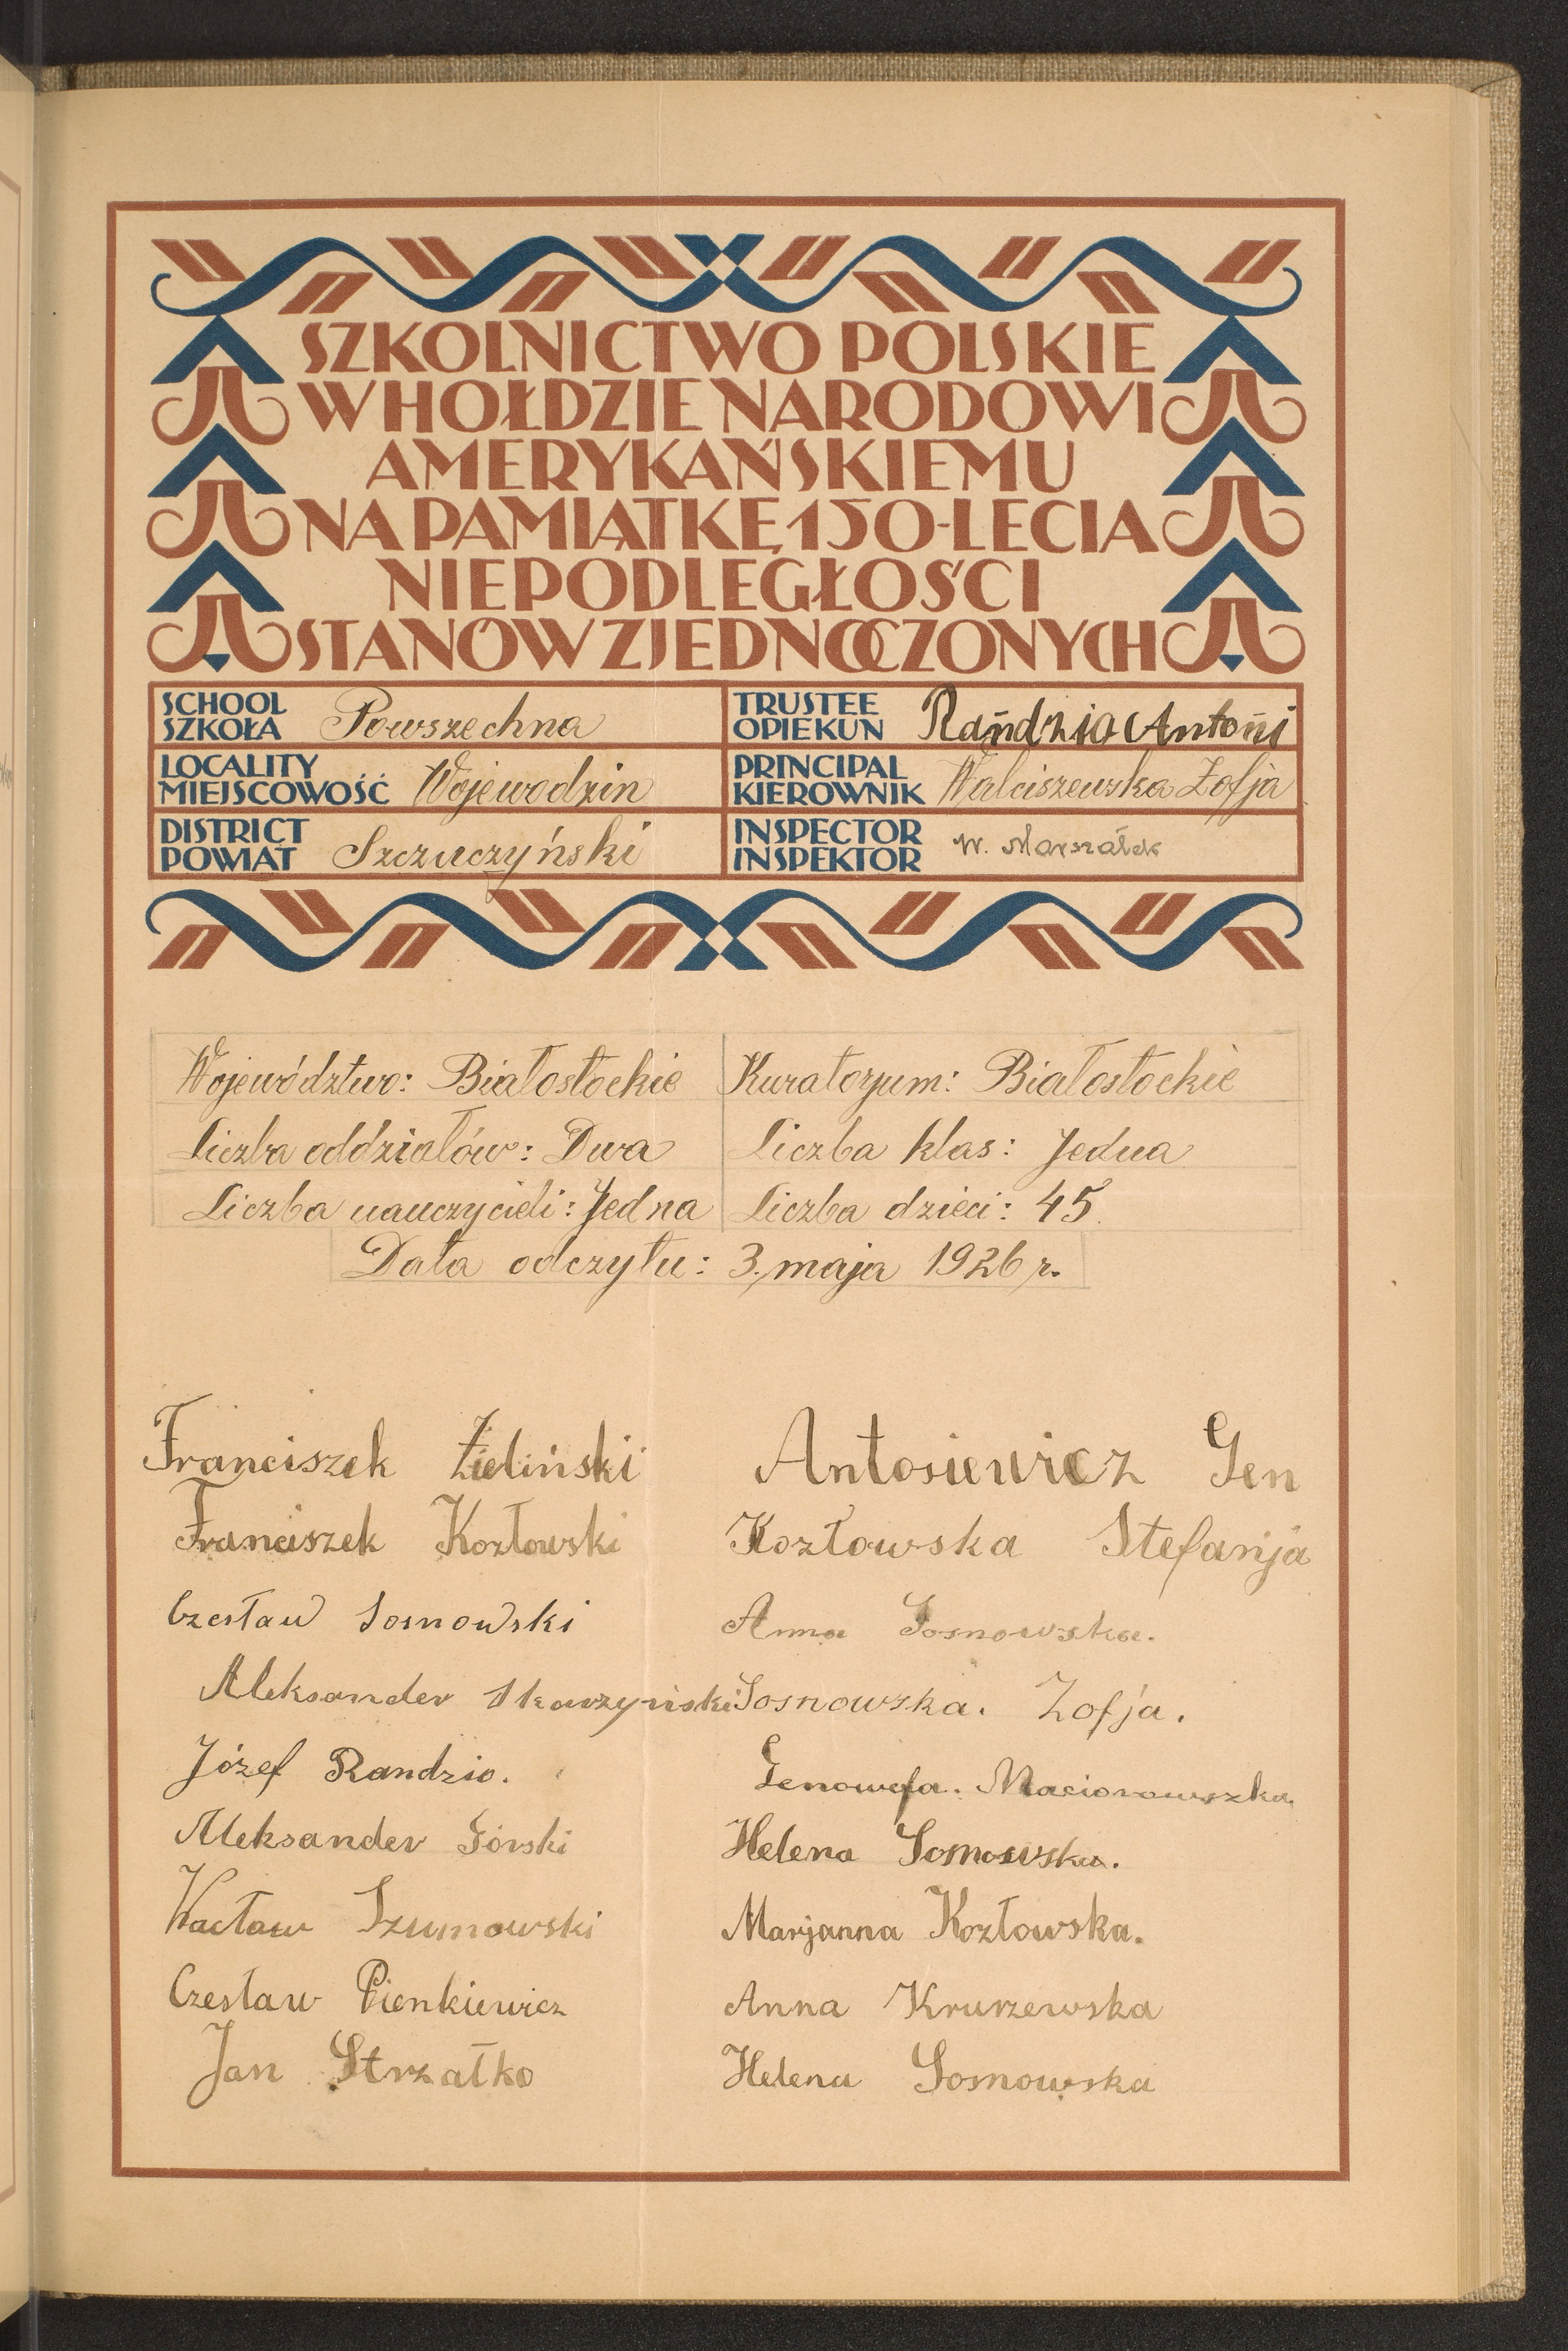 SZKOLNICTWO POLSKIE
W HOŁDZIE NARODOWI
AMERYKAŃSKIEMU
NA PAMIĄTKĘ 150-LECIA
NIEPODLEGŁOŚCI
STANÓW ZJEDNOCZONYCH
SCHOOL
SZKOŁA Powszechna
TRUSTEE
OPIEKUN Rańdzio Antońi
LOCALITY
MIEJSCOWOŚĆ Wojewodzin
PRINCIPAL
KIEROWNIK Walciszewska Zofja
DISTRICT
POWIAT Szczuczyński
INSPECTOR
INSPEKTOR W. Marszałek
Województwo: Białostockie
Kuratorjum: Białostockie
Liczba oddziałów: Dwa
Liczba klas: Jedna
Liczba nauczycieli: Jedna
Liczba dzieci: 45.
Data odczytu: 3. maja 1926 r.
Franciszek Zieliński
Franciszek Kozłowski
Czesław Sosnowski
Aleksander Skarzyński
Józef Randzio.
Aleksander Górski
Wacław Szumowski
Czesław Pienkiewicz
Jan Strzałko
Antosiewicz Gen
Kozłowska Stefanja
Anna Sosnowska.
Sosnowska. Zofja.
Genowefa. Maciorowszka.
Helena Sosnowska.
Marjanna Kozłowska.
Anna Kruszewska
Helena Sosnowska